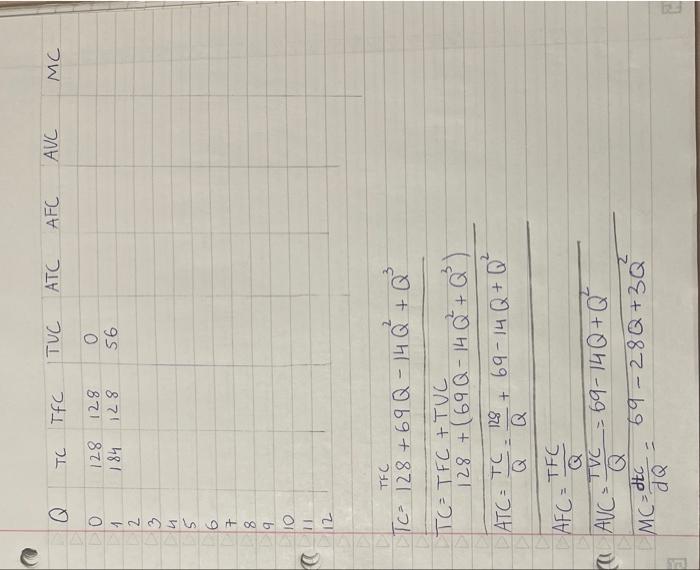 Q TC TFC TVC ATC AFC AVC MC
0 128 128 0
1 184 128 56
2
3
4
5
6
7
8
9
10
11
12
TFC
TC = 128 + 69Q - 14Q² + Q³
TC = TFC + TVC
128 + (69Q - 14Q² + Q³)
ATC = TC/Q = 128/Q + 69 - 14Q + Q²
AFC = TFC/Q
AVC = TVC/Q = 69 - 14Q + Q²
MC = dtc/dQ = 69 - 28Q + 3Q²